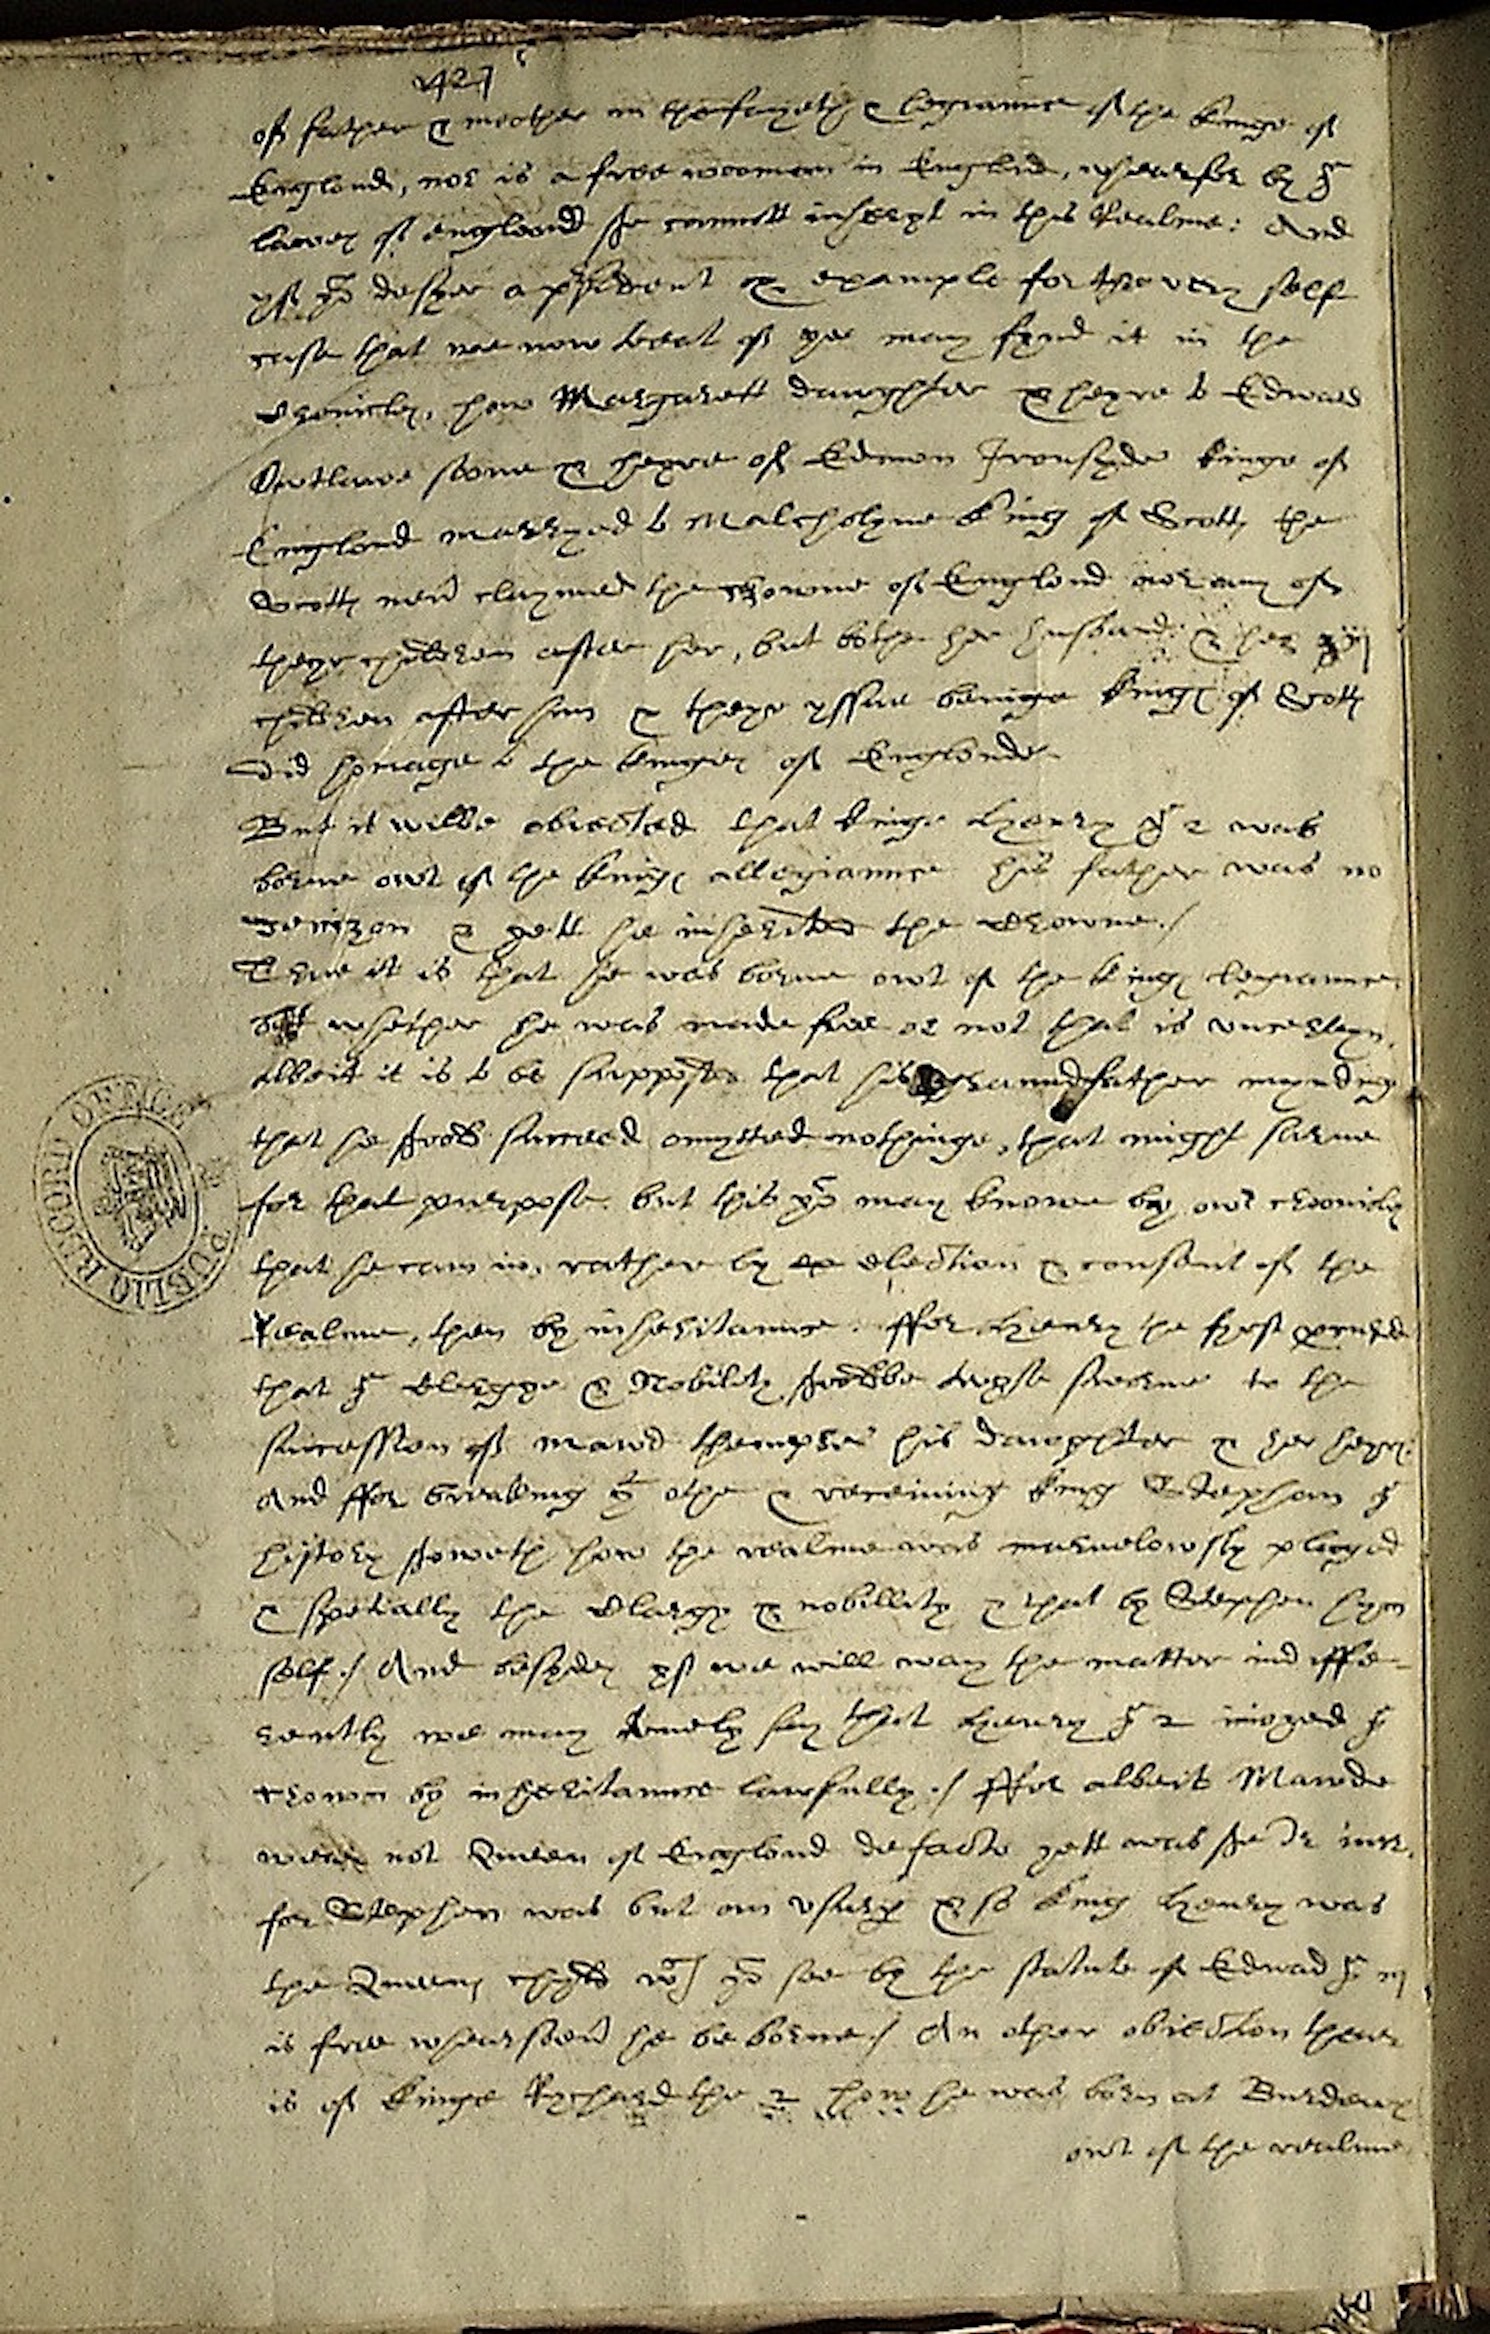 427
of father & mother in the fayeth & legiaunce of the Kinge of
Englond, nor is a free wooman in Englond, whearfor by ye
lawes of Englond she cannott inheryt in this Realme: And
yf yo desyer a president & example for the very self
case that we now treat of yee may fynd it in the
Chronicles, how Margarett daughter & heyre to Edward
Outlawe soone & heyre of Edmon Ironsyde kinge of
Englond marryed to Malcholyne King of Scotts the
Scotts never claymed the crowne of Englond nor any of
theyr children after her, but bothe her husband & her iij
children after him & theyr yssue beinge kings of Scotts
did homage to the kinges of Englonde
But it wilbe obiected that kinge Henry ye 2 was
borne owt of the kings allegiaunce his father was no
denizon & yett he inherited the Crowne./
True it is that he was borne owt of the kings legiaunce,
but whether he was made free or not that is uncerteyn,
albeit it is to be supposed that his graundfather myndinge
that he shold succeed omytted nothinge, that might serve
for that purpose. but this yo may knowe by owr chronicles
that he cam in, rather by election & consent of the
Realme, then by inheritaunce. ffor Henry the fyrst procured
that ye Clergye & Nobility sholdbe twyse sworne to the
succession of Mawd themprés his dawghter & her heyrs.
And ffor breaking yt othe & receiuing king Stephan ye
history showeth how the realme was maruelowsly plaged
& specially the Clargy & nobillity & that by Stephen hym
self./ And besydes yf we will way the matter indiffe-
rently we may truely say that Henry ye 2 inioyed ye
crown by inheritaunce lawfully./ ffor albeit Mawde
were not Queen of Englond de facto yett was she de iure.
for Stephen was but an usurper & so king Henry was
the Queens chyld wch yo see by the statute of Edward ye iij
is free whearsoever he be borne./ An other obiection thear
is of kinge Rychard the 2 how he was born at Burdeux
owt of the realme
PUBLIC RECORD OFFICE